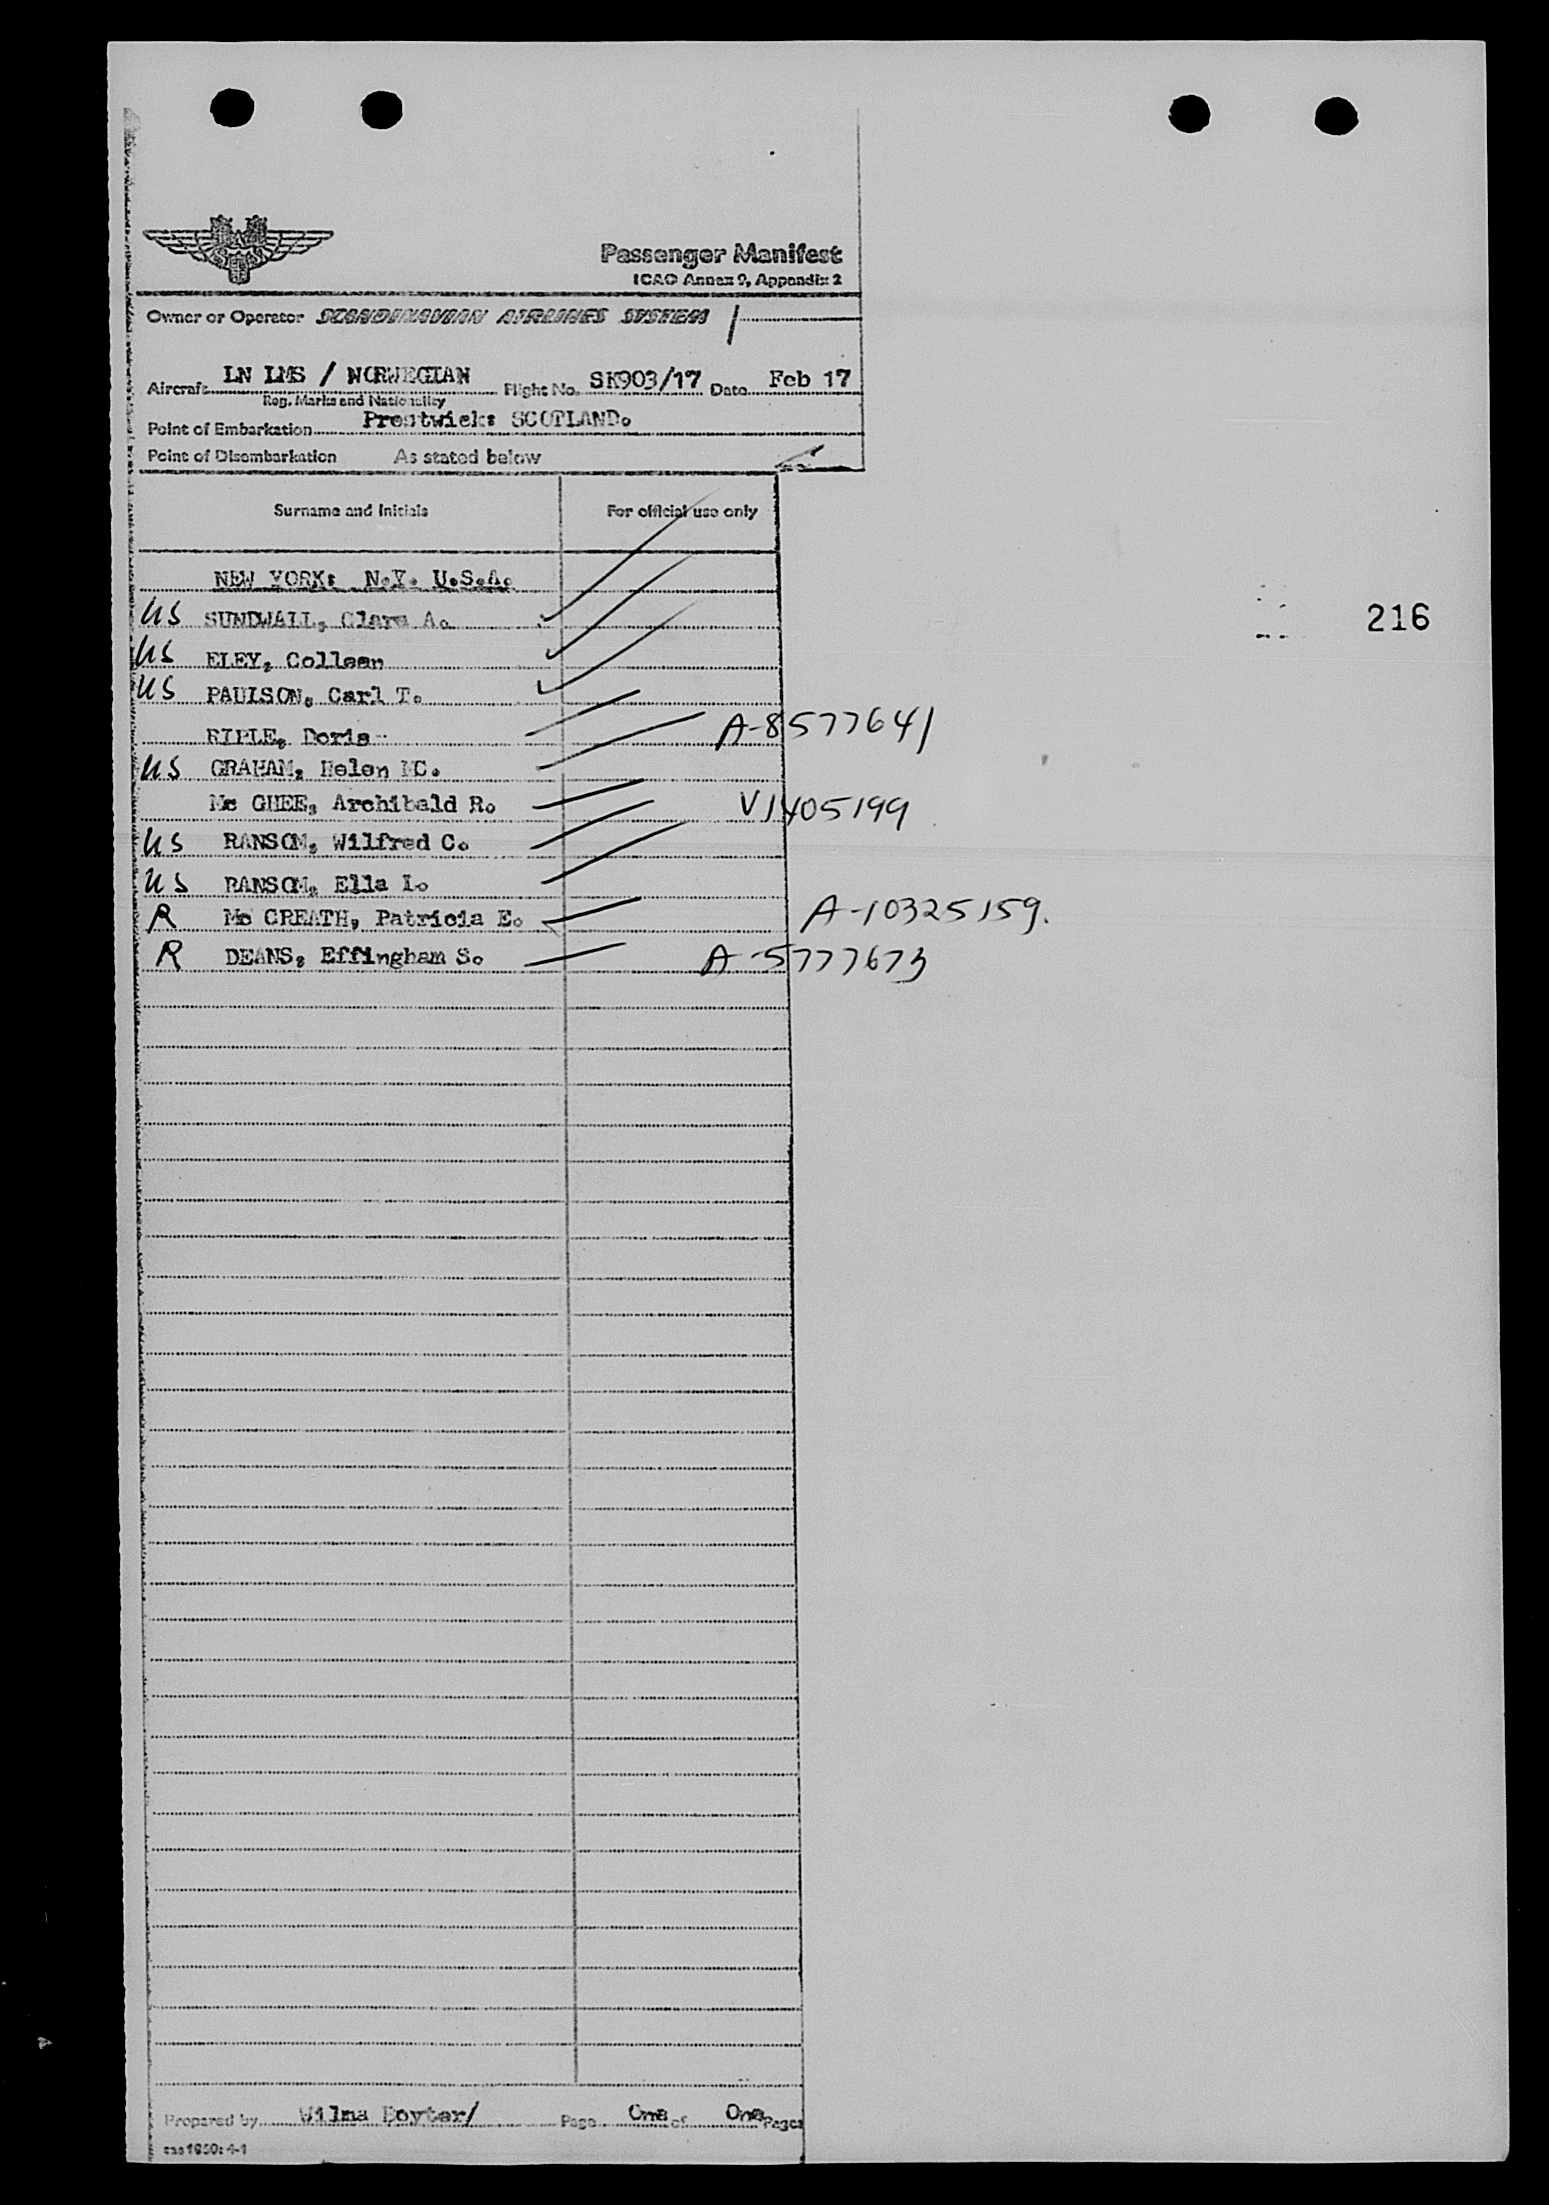 Passenger Manifest
ICAO Annex 9, Appendix 2
Owner or Operator SCANDINAVIAN AIRLINES SYSTEM
Aircraft LN LMS / NORWEGIAN Flight No. SK903/17 Date Feb 17
Reg. Marks and Nationality
Point of Embarkation Prestwick: SCOTLAND.
Point of Disembarkation As stated below
Surname and Initials For official use only
NEW YORK: N.Y. U.S.A.
216
US SUNDWALL, Clara A.
US ELEY, Colleen
US PAULSON, Carl T.
Doris A-8577641
US GRAHAM, Helen MC.
Mc GHEE, Archibald R. V1405199
US RANSOM, Wilfred C.
US RANSOM, Ella I.
R Mc CREATH, Patricia E. A-10325159.
R DEANS, Effingham S. A-5777673
Prepared by Wilma Boyter/ Page One of One Pages
sas 1950: 4-1